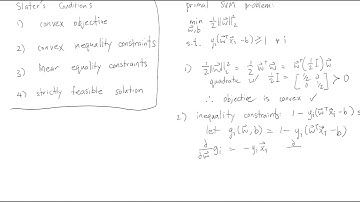 Slater's Conditions
1) convex objective
2) convex inequality constraints
3) linear equality constraints
4) strictly feasible solution
primal SVM problem:
min 1/2||w⃗||²₂
w⃗,b
s.t. yᵢ(w⃗ᵀx⃗ᵢ-b)≥1 ∀ i
1) 1/2||w⃗||²₂ = 1/2 w⃗ᵀw⃗ = w⃗ᵀ(1/2 I)w⃗
quadratic w/ 1/2 I = [1/2 0 0 1/2] ≻ 0
∴ objective is convex ✓
2) inequality constraints: 1-yᵢ(w⃗ᵀx⃗ᵢ-b) ≤
let gᵢ(w⃗,b) = 1-yᵢ(w⃗ᵀx⃗ᵢ-b)
∂/∂w⃗ gᵢ = -yᵢx⃗ᵢ ∂/